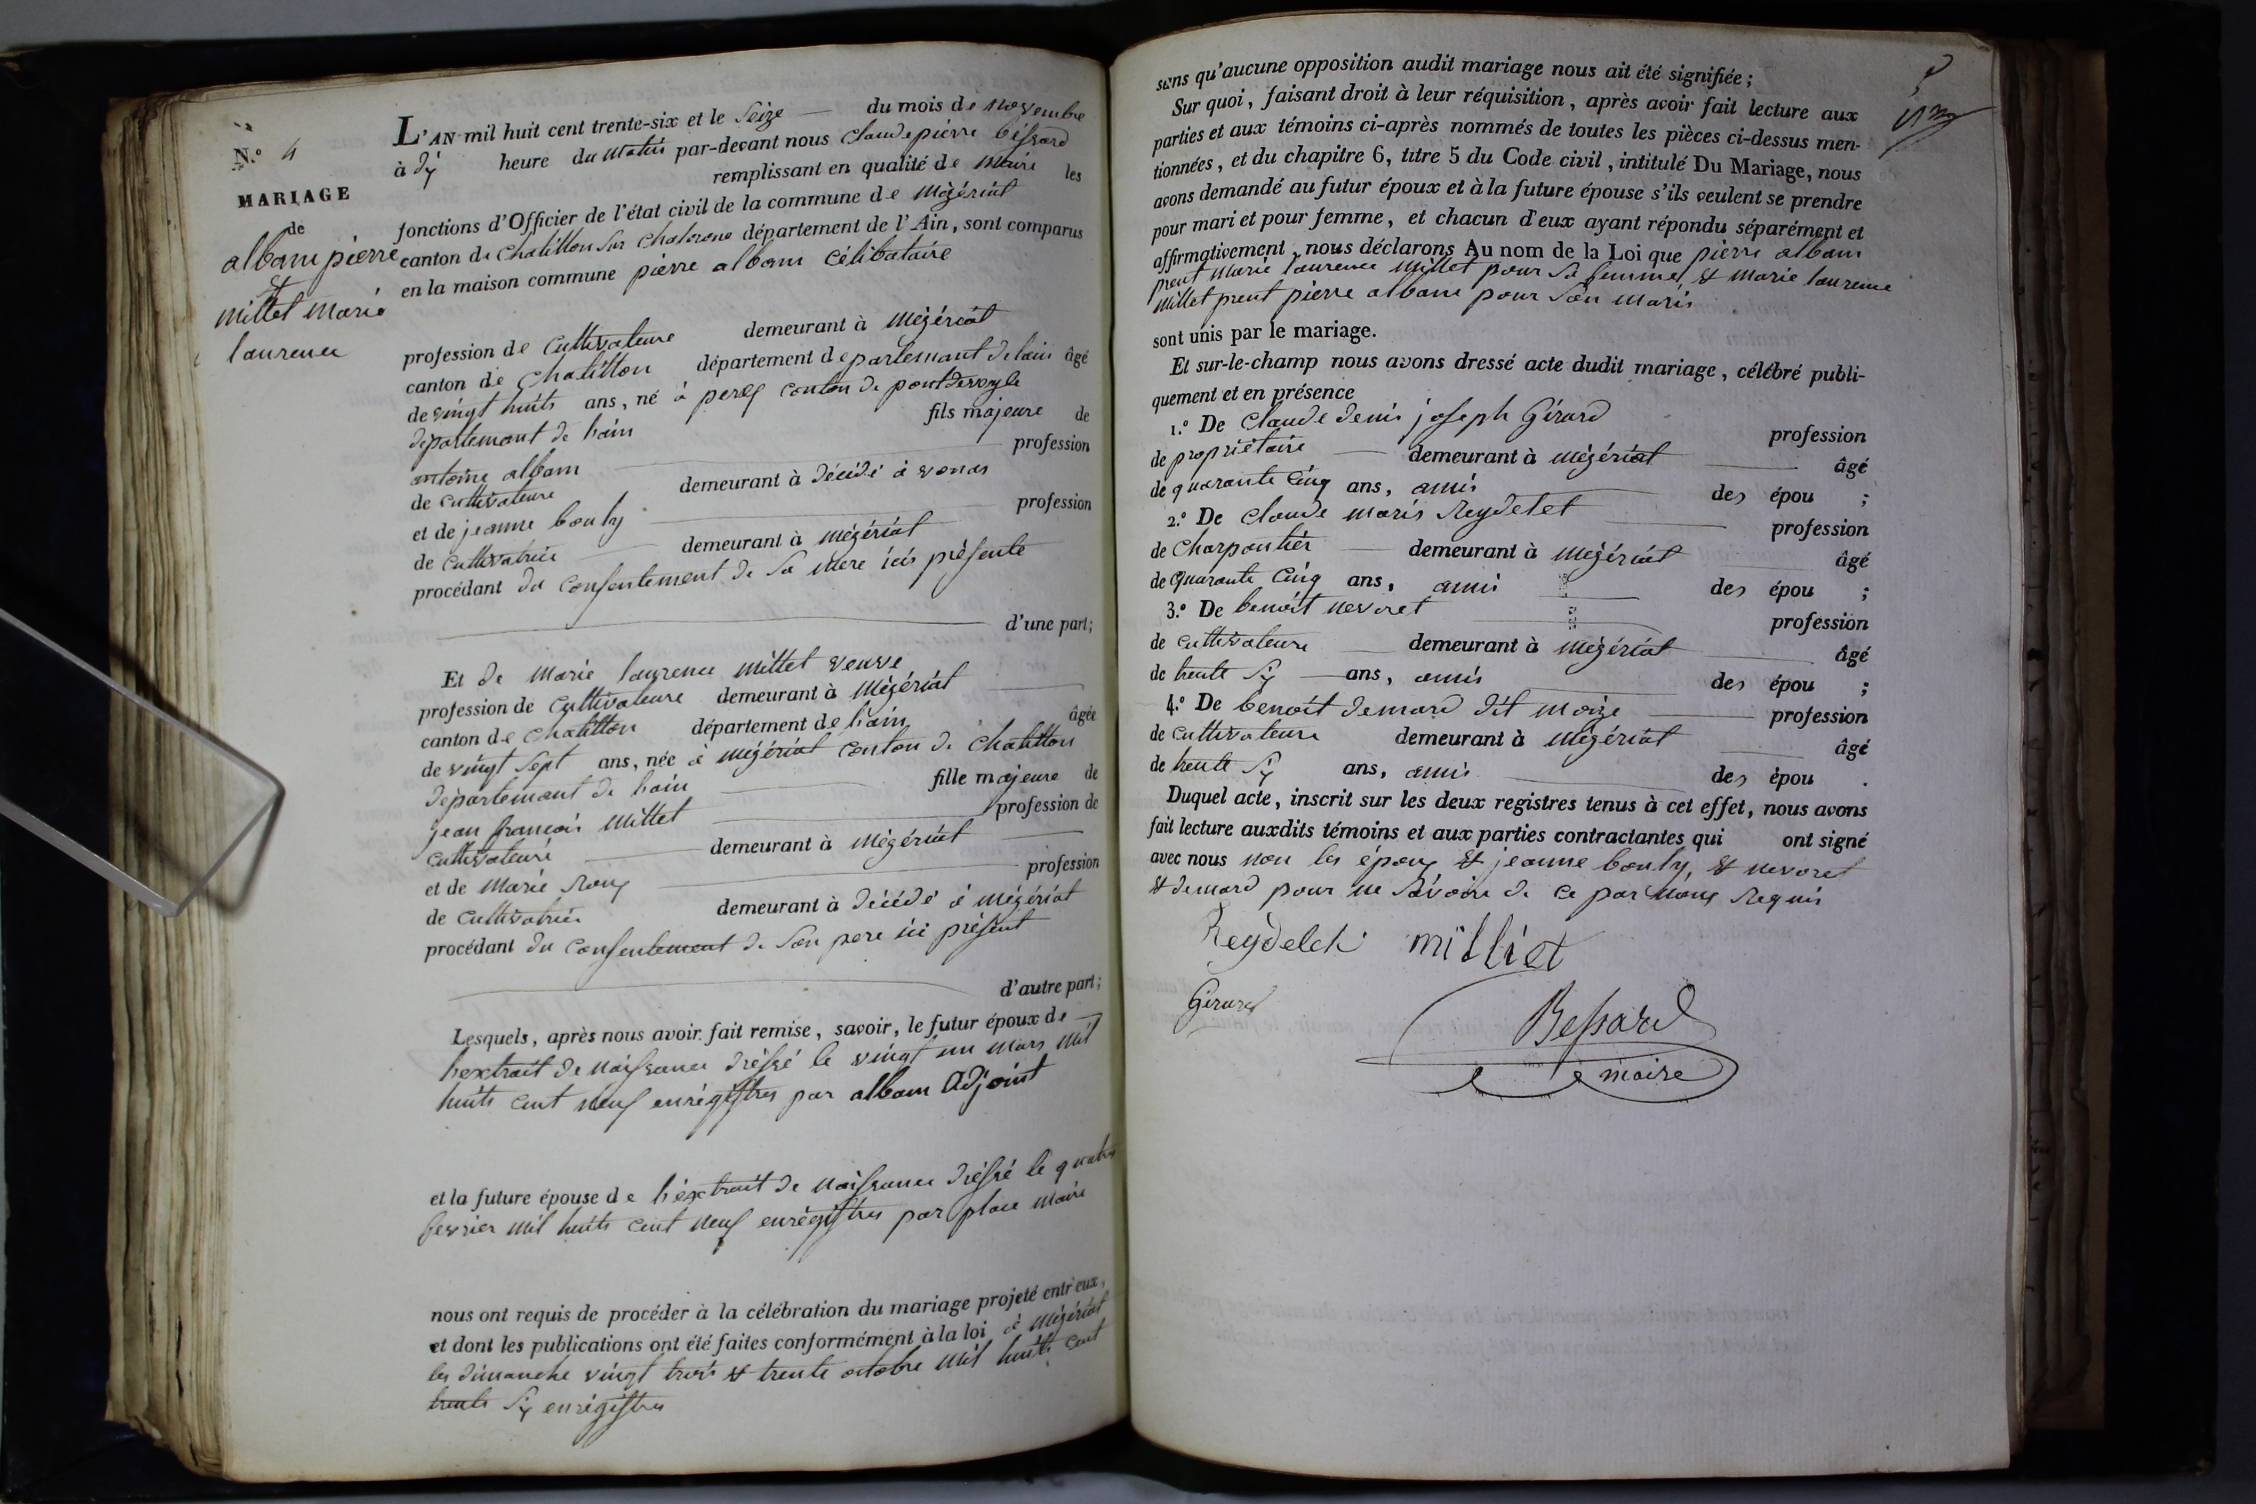 N.° 4
MARIAGE
de
albam pierre
et
millet Marie
laurence
L'AN mil huit cent trente-six et le Seize du mois de novembre
à dix heure du Matin par-devant nous claude pierre béssard
remplissant en qualité de Maire les
fonctions d'Officier de l'état civil de la commune de Mézériat
canton de chatillon sur chalarone département de l'Ain, sont comparus
en la maison commune pierre albam célibataire
profession de Cultivateure demeurant à Mézériat
canton de chatillon département departemant de lain âgé
de vingt huits ans, né à perex canton de pontdevayle
départemant de lain fils majeure de
antoine albam profession
de cultivateure demeurant à décédé à vonas
et de jeanne bouly profession
de cultivatrice demeurant à Mézériat
procédant du consentement de sa mere icis présente
d'une part;
Et de Marie laurence Millet veuve
profession de cultivateure demeurant à Mézériat
canton de chatillon département de lain âgée
de vingt sept ans, née à Mézériat canton de chatillon
départemant de lain fille majeure de
jean françois Millet profession de
cultivateure demeurant à Mézériat
et de Marie Roux profession
de cultivatrice demeurant à décédé à Mézériat
procédant du consentement de son pere ici présent
d'autre part;
Lesquels, après nous avoir fait remise, savoir, le futur époux de
l'extrait de naissance dréssé le vingt un mars mil
huits cent neuf enrégistres par albam Adjoint
et la future épouse de l'éxtrait de naissance dréssé le quatre
fevrier mil huits cent neuf enrégistres par place maire
nous ont requis de procéder à la célébration du mariage projeté entr'eux,
et dont les publications ont été faites conformément à la loi à Mézériat
les dimanche vingt trois et trente octobre mil huits cent
trente six enrégistres
sans qu'aucune opposition audit mariage nous ait été signifiée;
Sur quoi, faisant droit à leur réquisition, après avoir fait lecture aux
parties et aux témoins ci-après nommés de toutes les pièces ci-dessus men-
tionnées, et du chapitre 6, titre 5 du Code civil, intitulé Du Mariage, nous
avons demandé au futur époux et à la future épouse s'ils veulent se prendre
pour mari et pour femme, et chacun d'eux ayant répondu séparément et
affirmativement, nous déclarons Au nom de la Loi que pierre albam
prent Marie laurence Millet pour sa femme, et Marie laurence
Millet prent pierre albam pour son maris
sont unis par le mariage.
Et sur-le-champ nous avons dressé acte dudit mariage, célébré publi-
quement et en présence
1.° De claude denis joseph Gérard profession
de propriétaire demeurant à Mézériat âgé
de quarante cinq ans, amis des épou ;
2.° De claude maris Reydelet profession
de charpantier demeurant à Mézériat âgé
de quarante cinq ans, amis des épou ;
3.° De benoit nevoret profession
de cultivateure demeurant à Mézériat âgé
de trente six ans, amis des épou ;
4.° De benoit demard dit moize profession
de cultivateure demeurant à Mézériat âgé
de trente six ans, amis des épou .
Duquel acte, inscrit sur les deux registres tenus à cet effet, nous avons
fait lecture auxdits témoins et aux parties contractantes qui ont signé
avec nous non les époux et jeanne bouly, et nevoret
et demard pour ne savoire de ce par nous requis
Reydelet milliet
Gérard
Bessard
maire